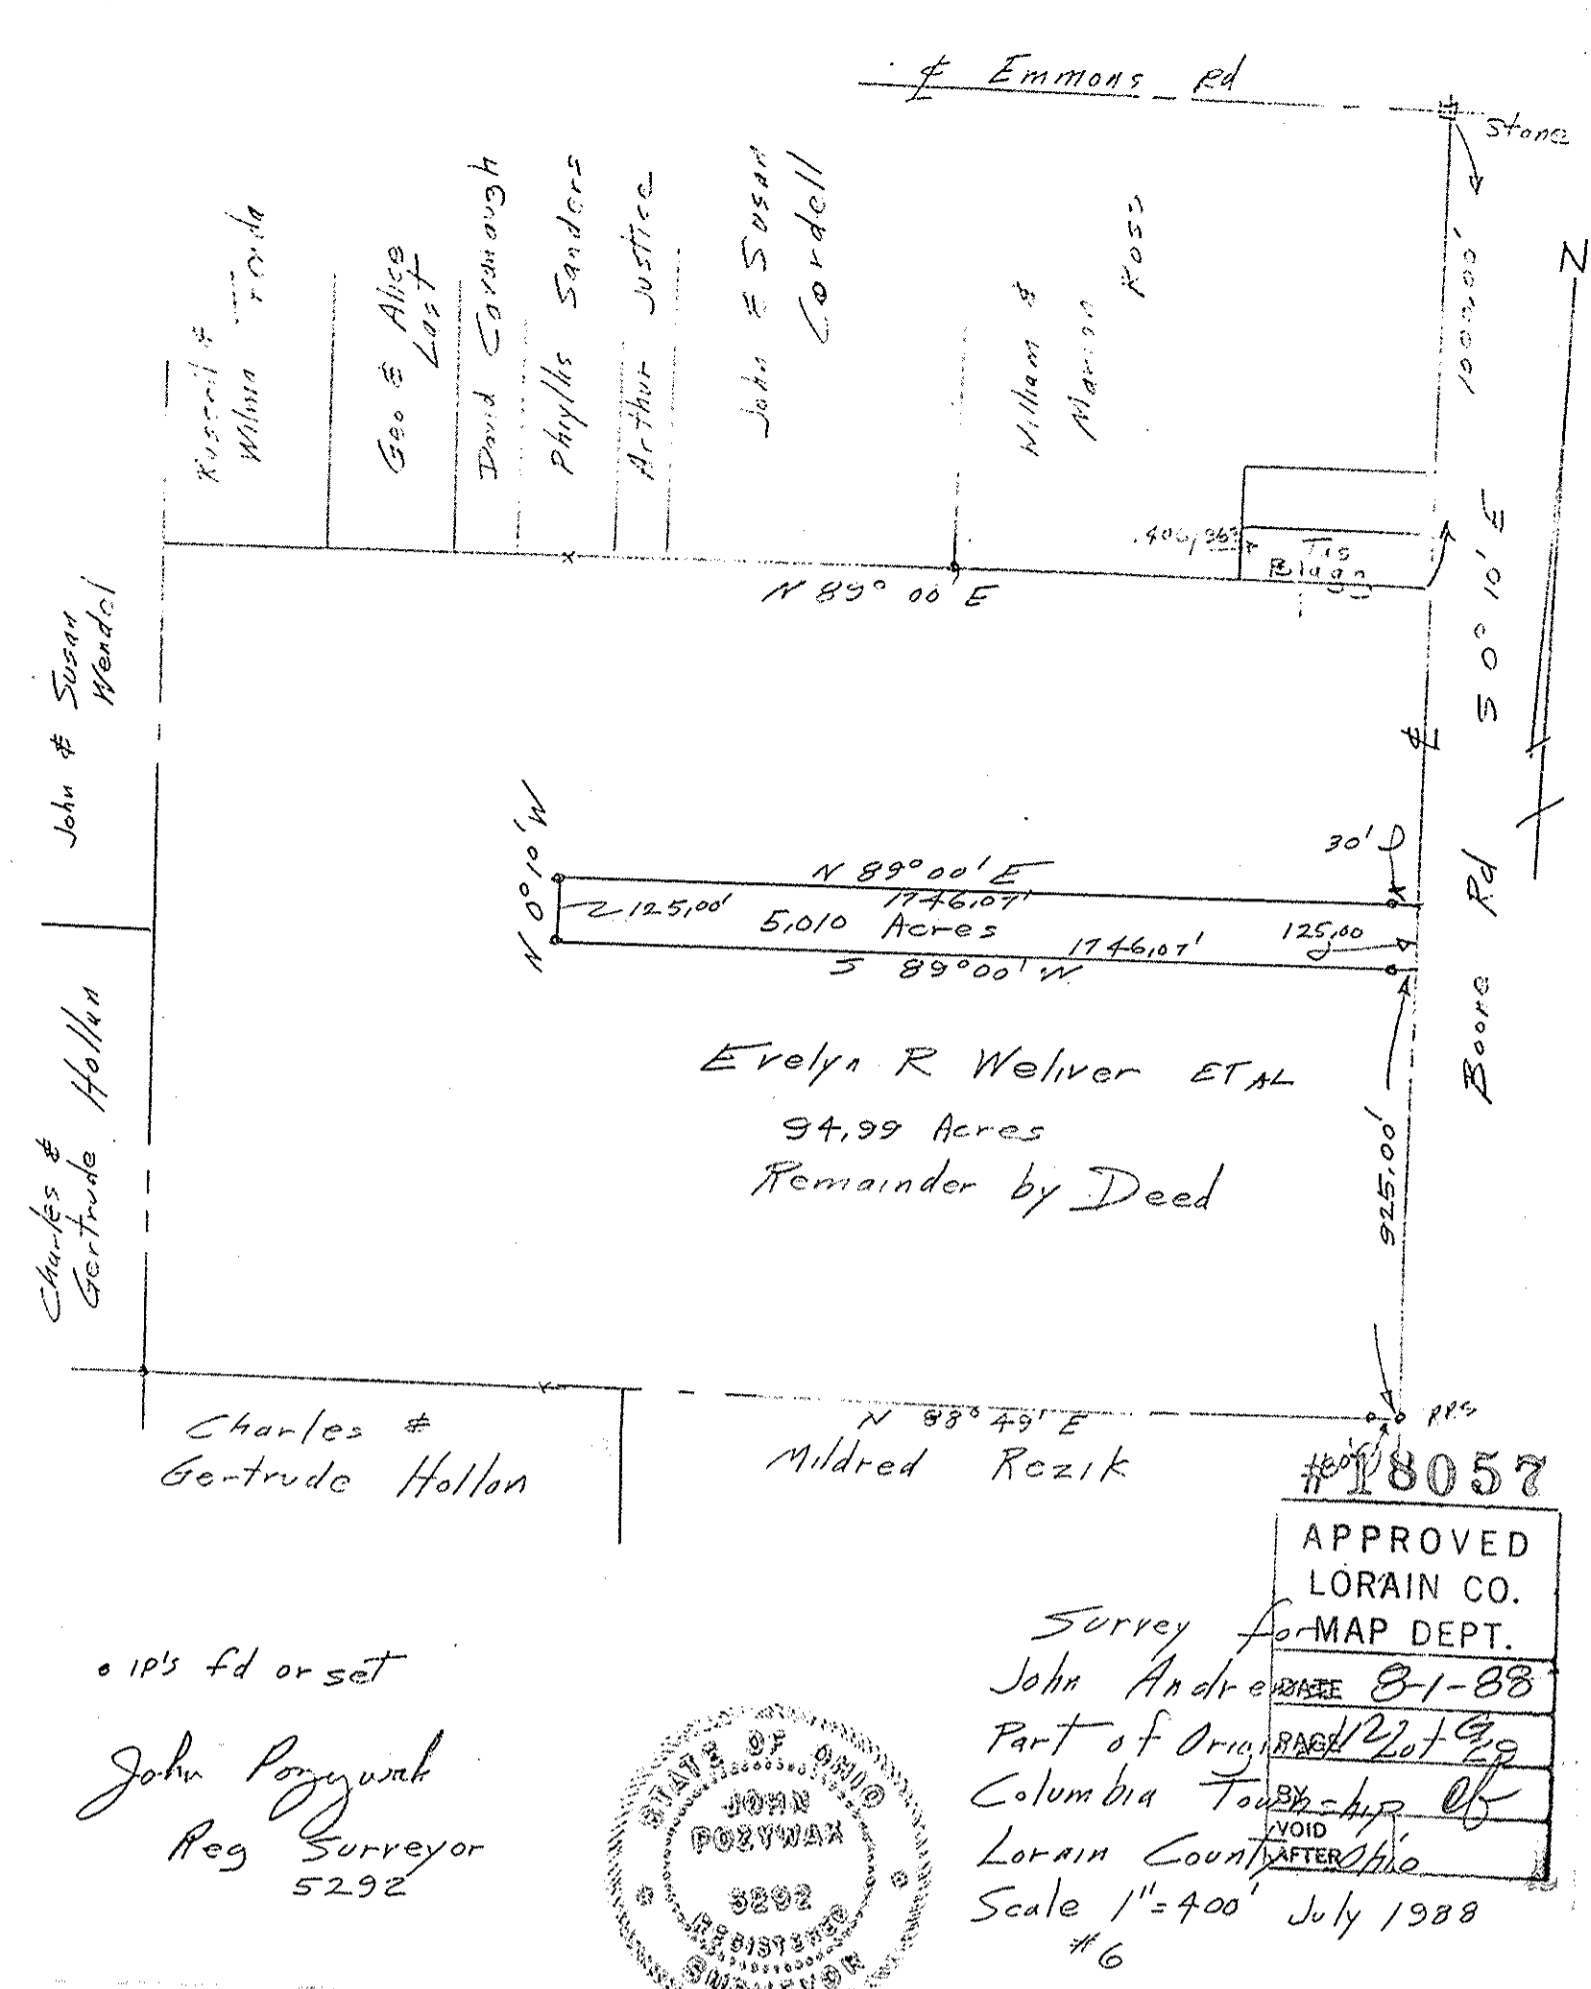 ℄ Emmons Rd
Stone
1000.00'
N
S 0° 10' E
Boone Rd
℄
Wilma
Geo & Alice
Last
David Cavanaugh
Phyllis Sanders
Arthur Justice
John & Susan
Cordell
William &
Marion
Ross
N 89° 00' E
John & Susan
Wendel
Charles &
Gertrude Hollan
N 0° 10' W
30'
N 89° 00' E
1746.07'
125.00'
5.010 Acres
125.00
1746.07'
S 89° 00' W
Evelyn R Weliver ET AL
94.99 Acres
Remainder by Deed
925.00'
N 88° 49' E
Charles &
Gertrude Hollon
Mildred Rezik
#18057
APPROVED
LORAIN CO.
MAP DEPT.
DATE 8-1-88
PAGE
BY
VOID
AFTER
Survey for
John
Part of
Columbia Township
Lorain County Ohio
Scale 1"=400' July 1988
#6
IP's fd or set
John Pozywak
Reg Surveyor
5292
STATE OF OHIO
JOHN
POZYWAK
5292
REGISTERED
SURVEYOR